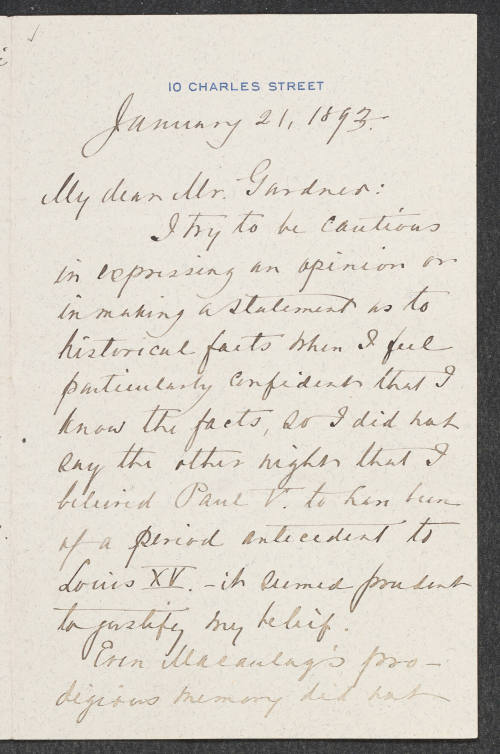 10 CHARLES STREET
January 21, 1893.
My dear Mr. Gardner:
I try to be cautious
in expressing an opinion or
in making a statement as to
historical facts when I feel
particularly confident that I
know the facts, so I did not
say the other night that I
believed Paul V. to have been
of a period antecedent to
Louis XV. - it seemed prudent
to justify my belief.
Even Macaulay's pro-
digious memory did not